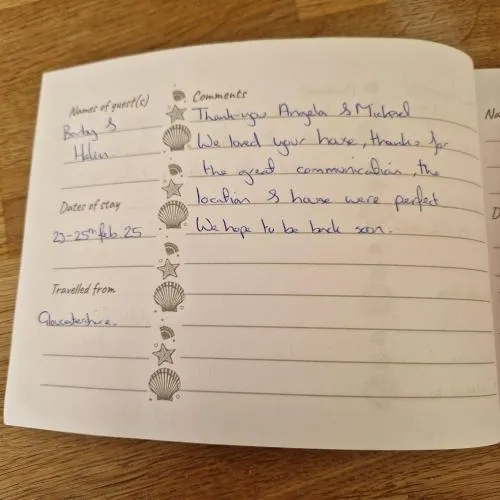 Names of guest(s)
&
Helen
Dates of stay
23-25th feb 25
Travelled from
Gloucestershire.
Comments
Thank-you Angela & Michael
We loved your house, thanks for
the great communication, the
location & house were perfect
We hope to be back soon.
Na
D